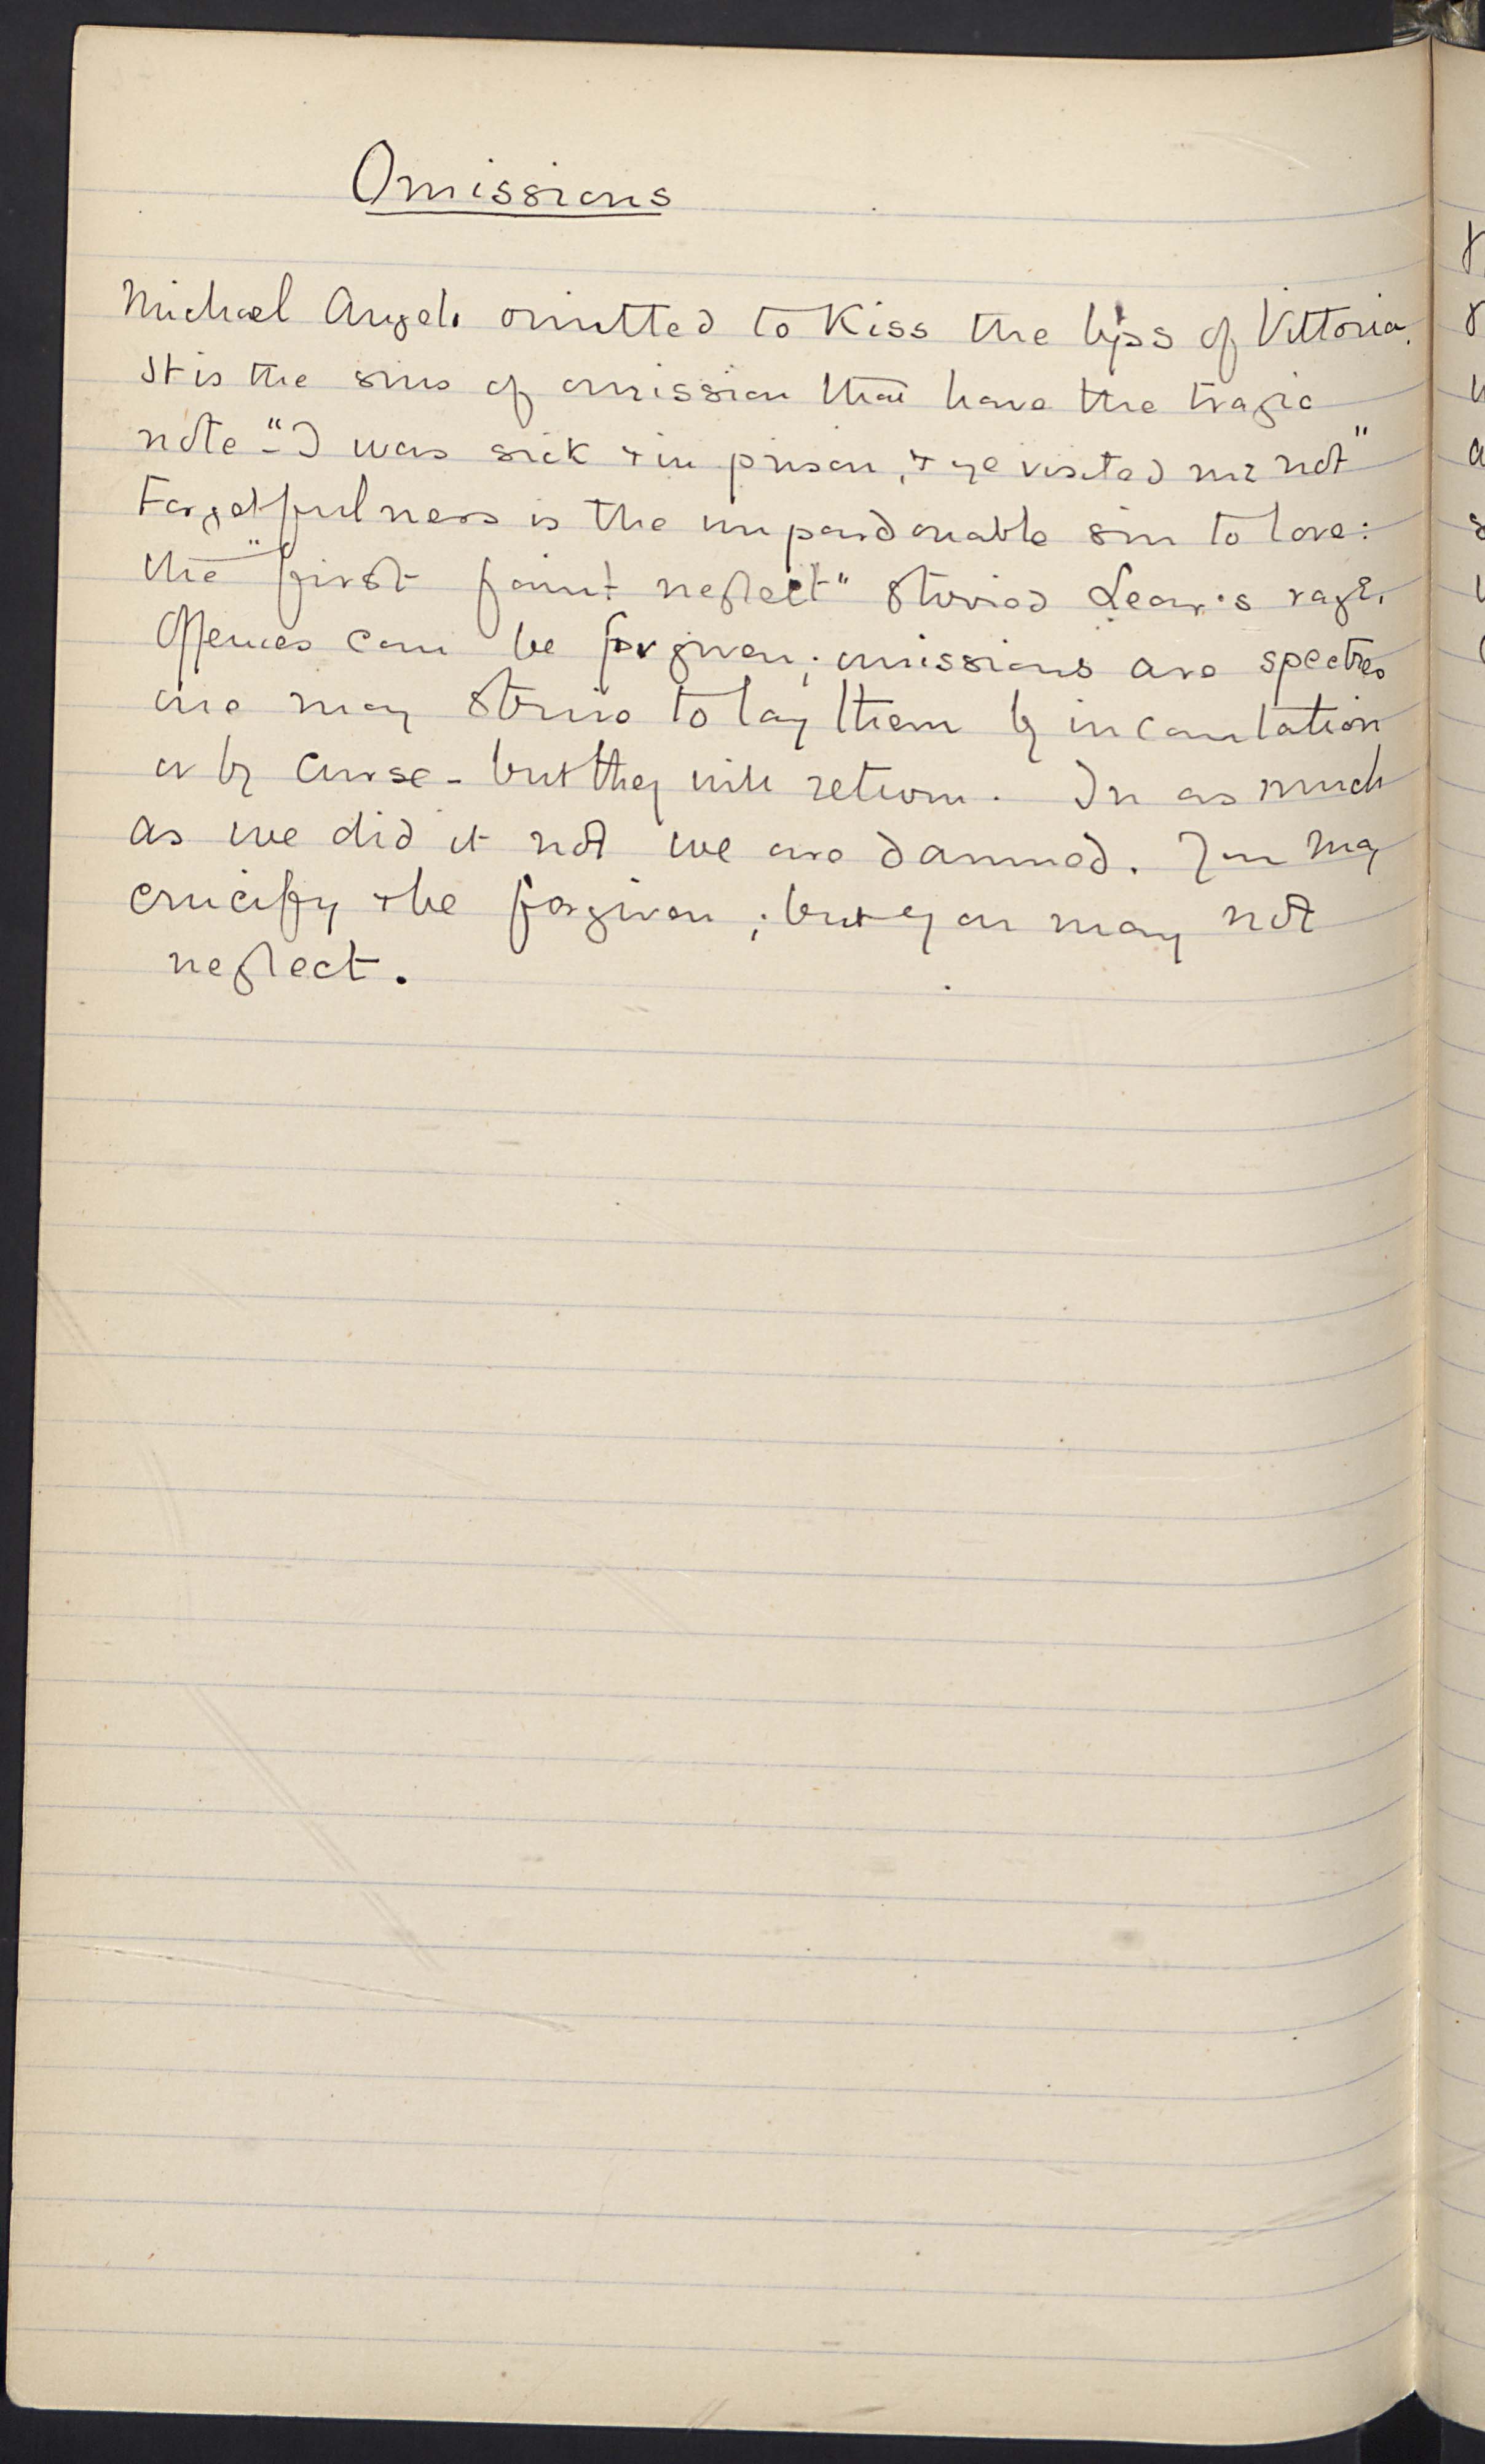 Omissions
Michael Angelo omitted to kiss the lips of Vittoria.
It is the sins of omission that have the tragic
note - "I was sick & in prison, & ye visited me not"
Forgetfulness is the unpardonable sin to love:
the "first faint neglect" stirred Lear's rage.
Offences can be forgiven; omissions are spectres
one may strive to lay them by incantation
or by curse - but they will return. In as much
as we did it not we are damned. You may
crucify & be forgiven; but you may not
neglect.